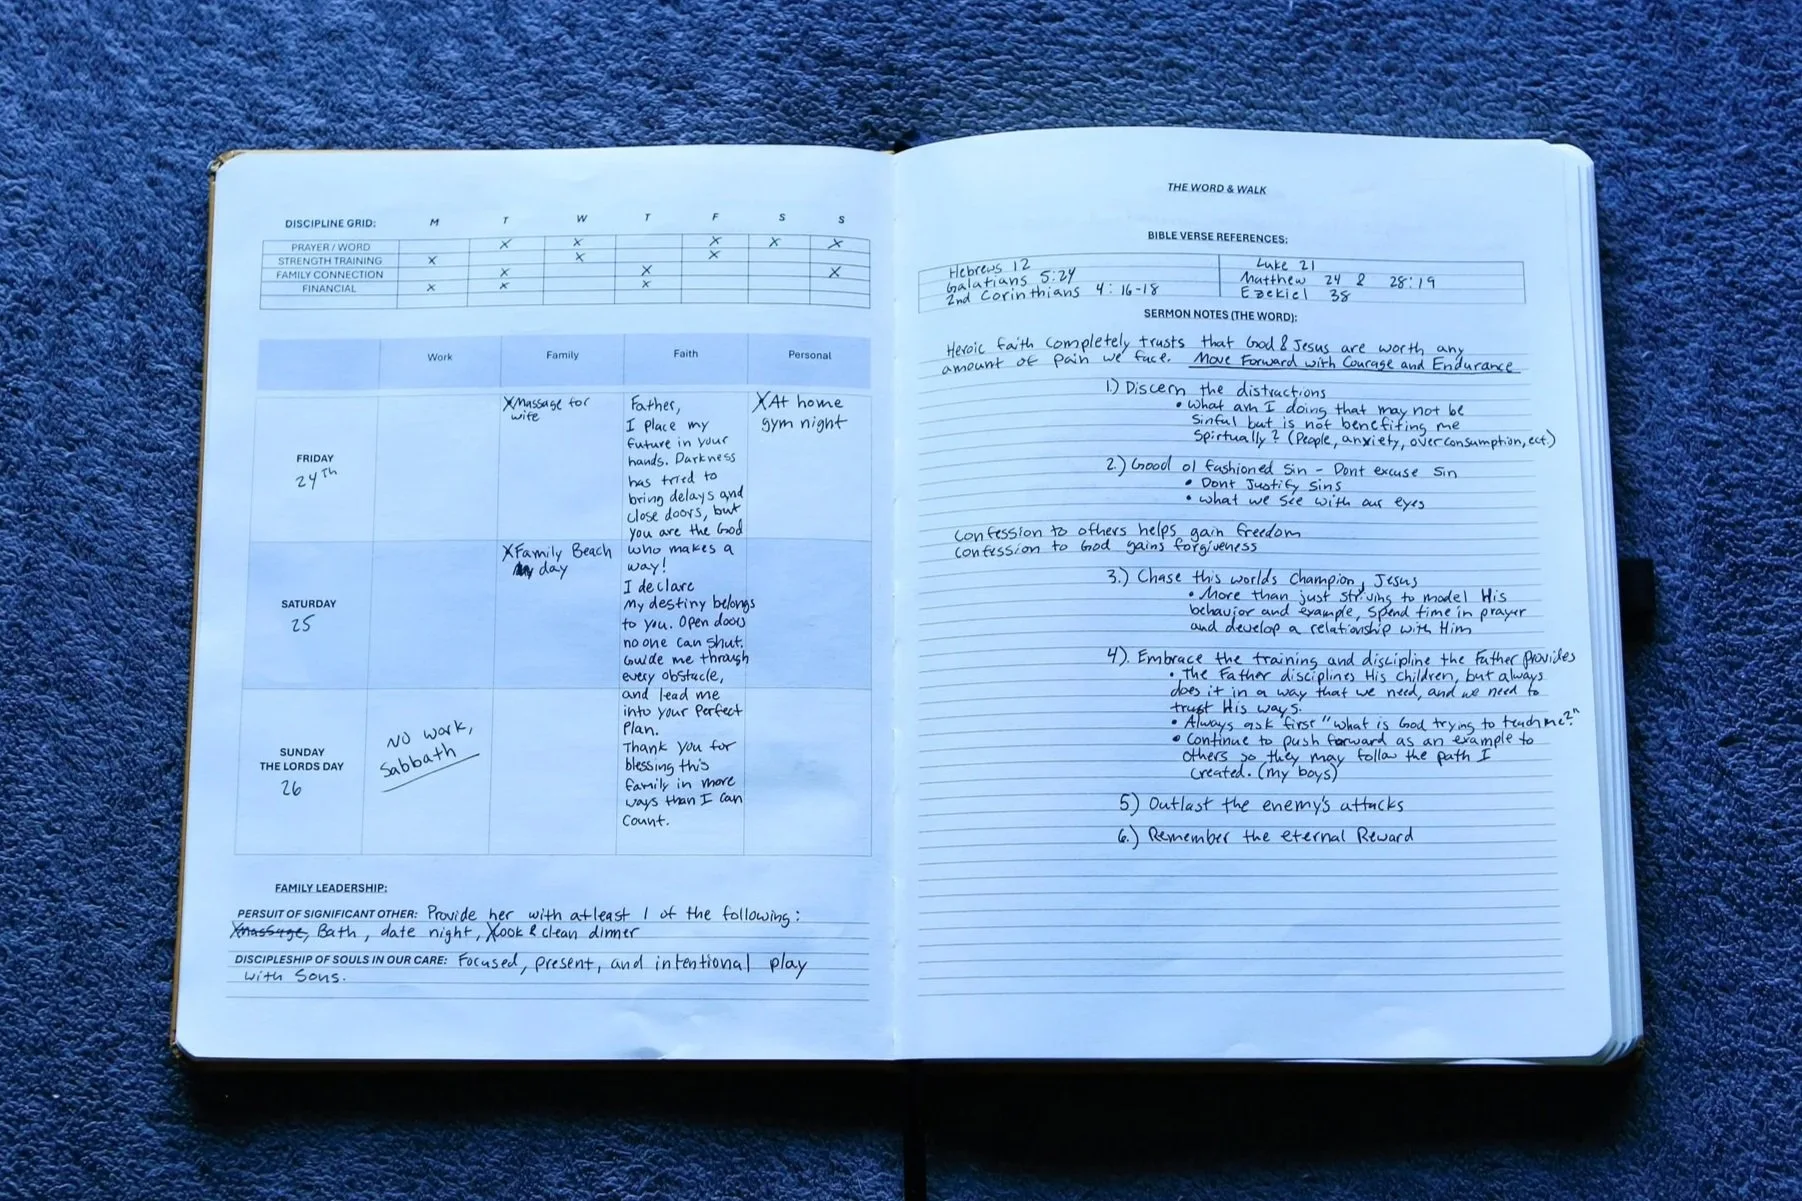 DISCIPLINE GRID: M T W T F S S
PRAYER / WORD X X X X X
STRENGTH TRAINING X X X
FAMILY CONNECTION X X X
FINANCIAL X X X
Work Family Faith Personal
FRIDAY
24th
X Massage for
wife
Father,
I place my
future in your
hands. Darkness
has tried to
bring delays and
close doors, but
you are the God
who makes a
way!
I declare
My destiny belongs
to you. Open doors
no one can shut.
Guide me through
every obstacle,
and lead me
into your Perfect
Plan.
Thank you for
blessing this
family in more
ways than I can
count.
X At home
gym night
SATURDAY
25
X Family Beach
day
SUNDAY
THE LORDS DAY
26
No work,
Sabbath
FAMILY LEADERSHIP:
PERSUIT OF SIGNIFICANT OTHER: Provide her with atleast 1 of the following:
massage, Bath, date night, Xook & clean dinner
DISCIPLESHIP OF SOULS IN OUR CARE: Focused, present, and intentional play
with Sons.
THE WORD & WALK
BIBLE VERSE REFERENCES:
Hebrews 12
Galatians 5:24
2nd Corinthians 4:16-18
Luke 21
Matthew 24 & 28:19
Ezekiel 38
SERMON NOTES (THE WORD):
Heroic faith completely trusts that God & Jesus are worth any
amount of pain we face. Move Forward with Courage and Endurance
1.) Discern the distractions
• What am I doing that may not be
sinful but is not benefiting me
Spirtually? (People, anxiety, over consumption, ect.)
2.) Good ol fashioned Sin - Dont excuse sin
• Dont Justify Sins
• what we see with our eyes
Confession to others helps gain freedom
Confession to God gains forgiveness
3.) Chase this worlds Champion, Jesus
• More than just striving to model His
behavior and example, spend time in prayer
and develop a relationship with Him
4). Embrace the training and discipline the Father provides
• The Father disciplines His children, but always
does it in a way that we need, and we need to
trust His ways.
• Always ask first "what is God trying to teach me?"
• Continue to push forward as an example to
others so they may follow the path I
created. (my boys)
5) Outlast the enemy's attacks
6.) Remember the eternal Reward